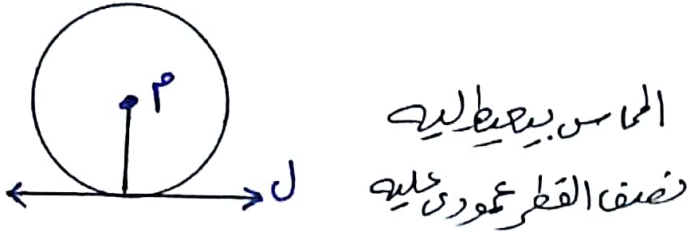 م
المماس بيعيط ليه
نصف القطر عمودى عليه
ل